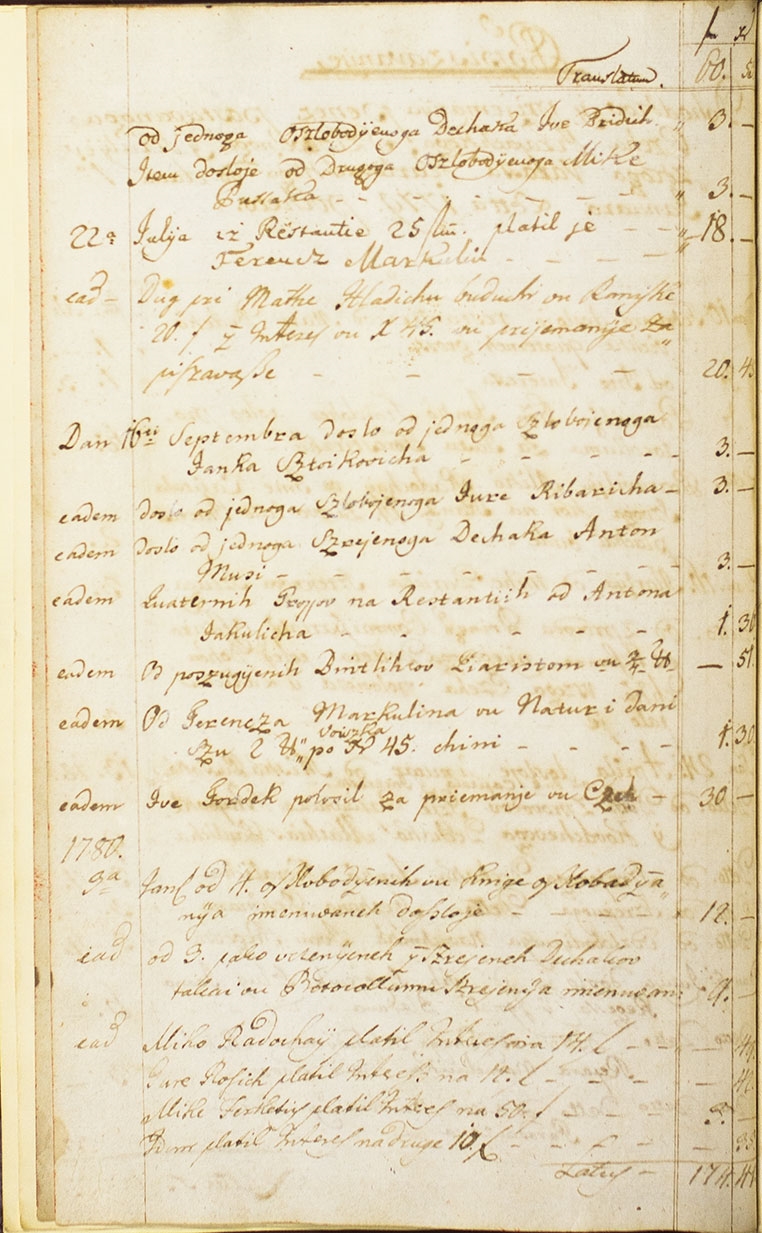 f x
Translatum. 60. 5
od jednoga oszlobodyenoga Dechaka Ive Bridich " 3. –
Item dosloje od Drugoga oszlobodyenoga Mike
Pussaka – – – – – – " 3. –
22ª Julya iz Restantie 25 platil je – – " 18. –
Ferencz Markulin – – – –
ead – Dug pri Mathe Hladichu buduchi vu Ranyske
20. f y Interes vu X 45. vu prijemanije za„
piszavasse – – – – 20. 4
Dan 16 Septembra doslo od jednoga Szlobojenoga
Janka Sztoikovicha – – – – – 3. –
eadem doslo od jednoga Szlobojenoga Jure Ribaricha – 3. –
eadem doslo od jednoga Szrejenoga Dechaka Anton
Musi – – – – – – – 3. –
eadem Quaternih Groſſov na Restantiih od Antona
Jakulicha – – – – – 1. 30
eadem Od poszugyenih Dintlihov Piaristom vu – 51.
eadem Od Ferencza Markulina vu Natur i dani
Szu 2 " po Xr 45. chini – – – – 1. 30
Voiszka
eadem Ive Gordek polosil za priemanje vu Czeh – 30 –
1780.
9ª od 4. oſſlobodyenih vu knige oſſlobadya„
nya imenuvaneh doſsloje – – – – – 12. –
ead od 3. jako vchenyeneh y Szrejeneh Dechakov
takai vu Szrejenya imenuvan: 9. –
ead Miho Radochay platil Interes na 14. f – – –
Jure Rosich platil Intereſs na 12. f – – –
Mike platil Interes na 50. f – –
Idem platil Interes na druge 10. f – – –
Latus – 174. 44